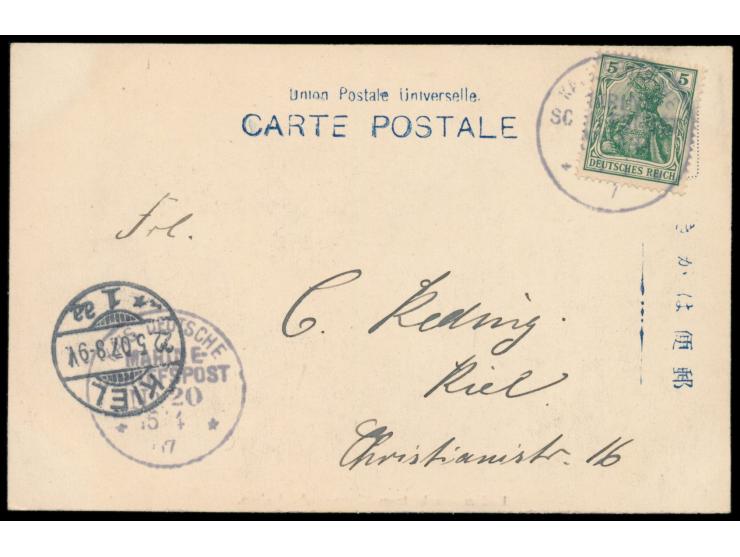 Union Postale Universelle.
CARTE POSTALE
5 5
DEUTSCHES REICH
SC
きかは便郵
Frl.
C. Reding.
Kiel
Christianistr. 16
KIEL
22.5.07.8-9V.
* 1 aa
DEUTSCHE
MARINE-
POST
20
* 15 4 *
07